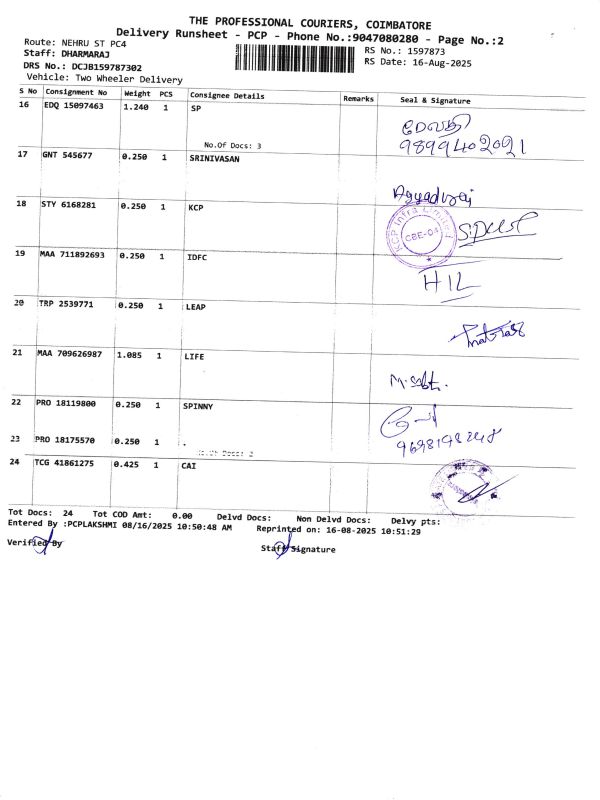 THE PROFESSIONAL COURIERS, COIMBATORE
Delivery Runsheet - PCP - Phone No.:9047080280 - Page No.:2
Route: NEHRU ST PC4 RS No.: 1597873
Staff: DHARMARAJ RS Date: 16-Aug-2025
DRS No.: DCJB159787302
Vehicle: Two Wheeler Delivery
S No Consignment No Weight PCS Consignee Details Remarks Seal & Signature
16 EDQ 15097463 1.240 1 SP
9899402021
No.Of Docs: 3
17 GNT 545677 0.250 1 SRINIVASAN
18 STY 6168281 0.250 1 KCP
KCP Infra Limited CBE-04
19 MAA 711892693 0.250 1 IDFC
HIL
20 TRP 2539771 0.250 1 LEAP
21 MAA 709626987 1.085 1 LIFE
22 PRO 18119800 0.250 1 SPINNY
23 PRO 18175570 0.250 1 .
No.Of Docs: 2
24 TCG 41861275 0.425 1 CAI
Tot Docs: 24 Tot COD Amt: 0.00 Delvd Docs: Non Delvd Docs: Delvy pts:
Entered By :PCPLAKSHMI 08/16/2025 10:50:48 AM Reprinted on: 16-08-2025 10:51:29
Verified By Staff Signature